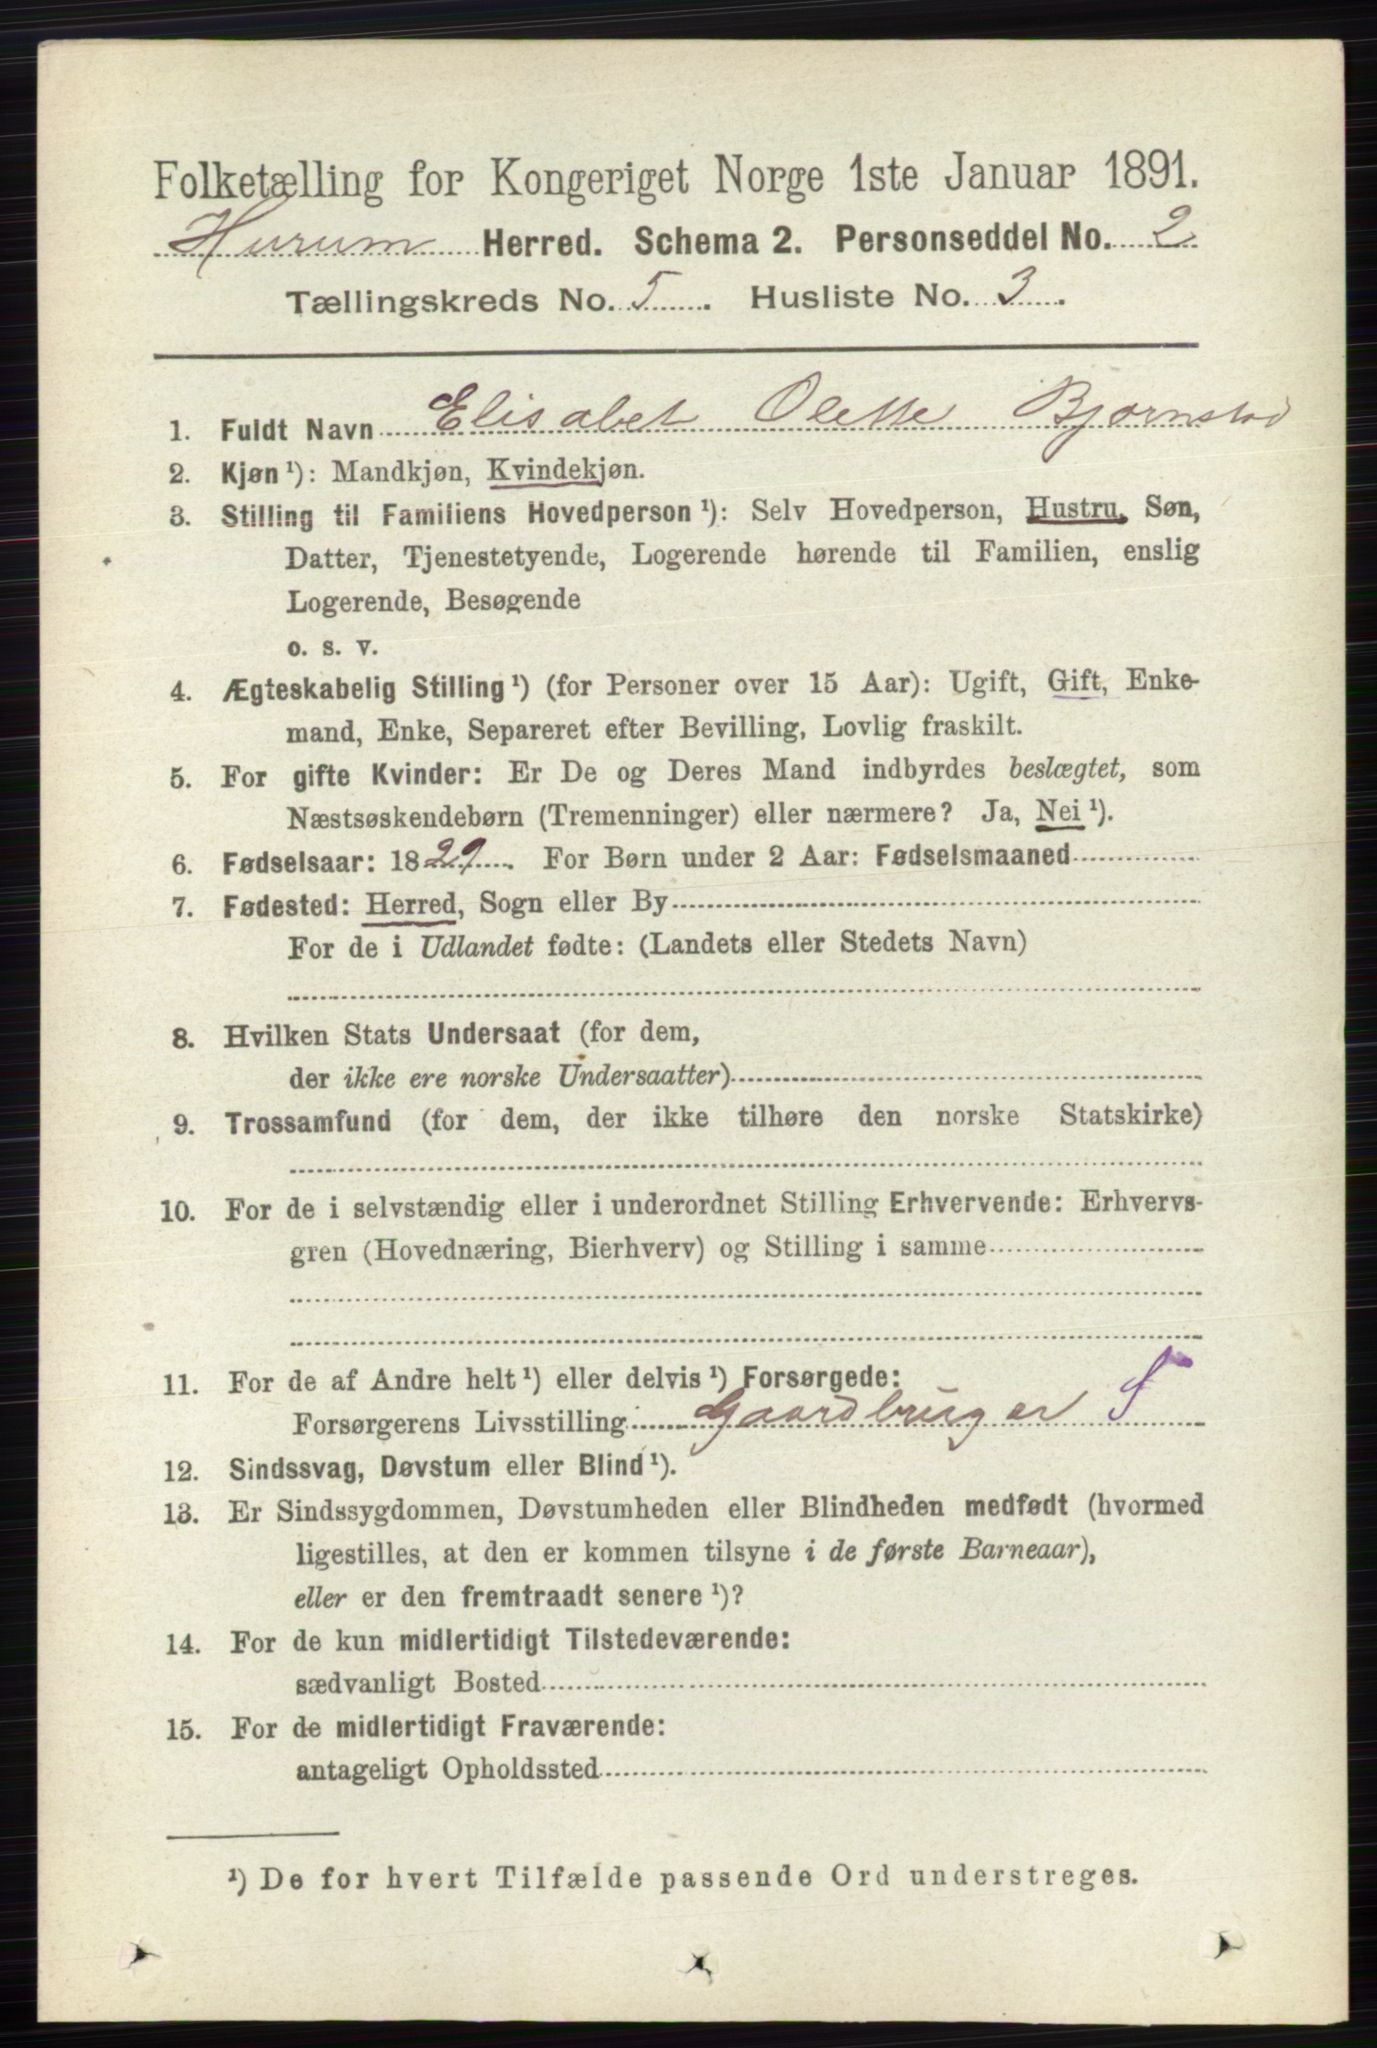 Folketælling for Kongeriget Norge 1ste Januar 1891.
Hurum Herred. Schema 2. Personseddel No. 2
Tællingskreds No. 5. Husliste No. 3.
1. Fuldt Navn Elisabet Olette Bjørnstad
2. Kjøn ¹): Mandkjøn, Kvindekjøn.
3. Stilling til Familiens Hovedperson ¹): Selv Hovedperson, Hustru, Søn,
Datter, Tjenestetyende, Logerende hørende til Familien, enslig
Logerende, Besøgende
o. s. v.
4. Ægteskabelig Stilling ¹) (for Personer over 15 Aar): Ugift, Gift, Enke-
mand, Enke, Separeret efter Bevilling, Lovlig fraskilt.
5. For gifte Kvinder: Er De og Deres Mand indbyrdes beslægtet, som
Næstsøskendebørn (Tremenninger) eller nærmere? Ja, Nei ¹).
6. Fødselsaar: 1829. For Børn under 2 Aar: Fødselsmaaned
7. Fødested: Herred, Sogn eller By
For de i Udlandet fødte: (Landets eller Stedets Navn)
8. Hvilken Stats Undersaat (for dem,
der ikke ere norske Undersaatter)
9. Trossamfund (for dem, der ikke tilhøre den norske Statskirke)
10. For de i selvstændig eller i underordnet Stilling Erhvervende: Erhvervs-
gren (Hovednæring, Bierhverv) og Stilling i samme
11. For de af Andre helt ¹) eller delvis ¹) Forsørgede:
Forsørgerens Livsstilling Gaardbruger S
12. Sindssvag, Døvstum eller Blind ¹).
13. Er Sindssygdommen, Døvstumheden eller Blindheden medfødt (hvormed
ligestilles, at den er kommen tilsyne i de første Barneaar),
eller er den fremtraadt senere ¹)?
14. For de kun midlertidigt Tilstedeværende:
sædvanligt Bosted
15. For de midlertidigt Fraværende:
antageligt Opholdssted
¹) De for hvert Tilfælde passende Ord understreges.